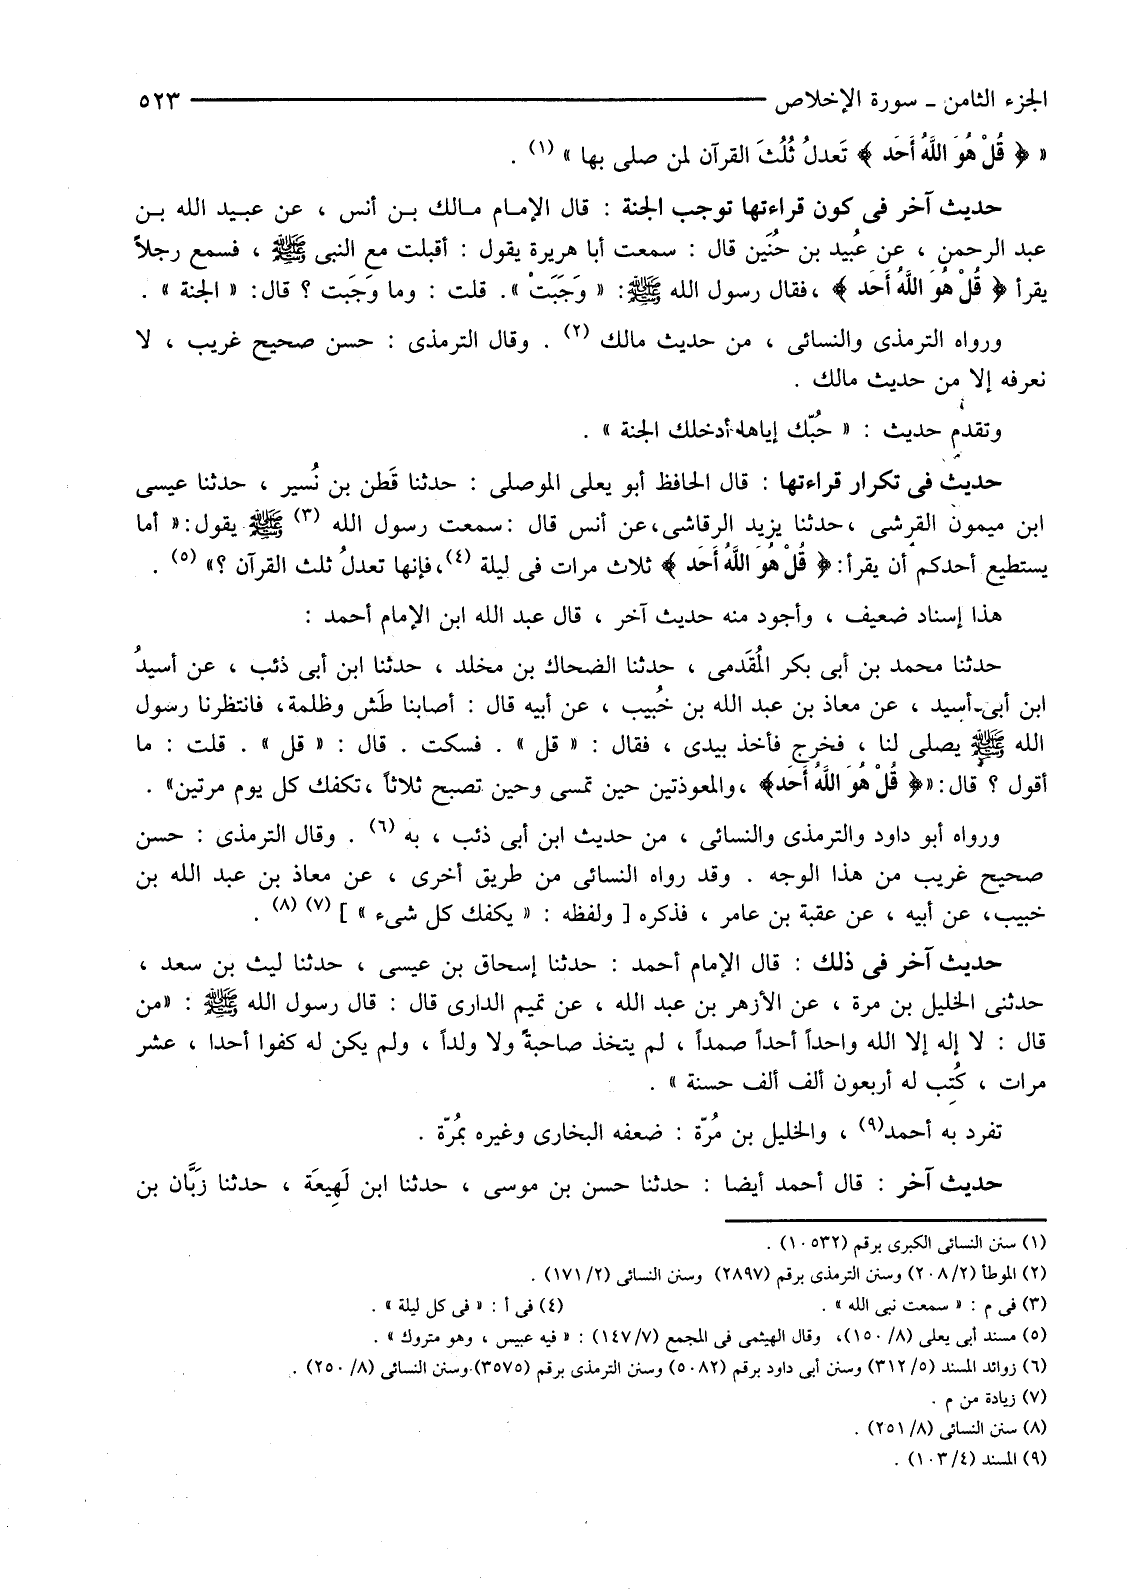 الجزء الثامن ـ سورة الإخلاص ٥٢٣
« ﴿ قُلْ هُوَ اللَّهُ أَحَد ﴾ تَعدلُ ثُلُثَ القرآن لمن صلى بها » (١) .
حديث آخر فى كون قراءتها توجب الجنة : قال الإمـام مـالك بـن أنس ، عن عبـيد الله بـن
عبد الرحمن ، عن عُبيد بن حُنَين قال : سمعت أبا هريرة يقول : أقبلت مع النبى ﷺ ، فسمع رجلاً
يقرأ ﴿ قُلْ هُوَ اللَّهُ أَحَد ﴾ ،فقال رسول الله ﷺ: « وَجَبَتْ ». قلت : وما وَجَبت ؟ قال: « الجنة » .
ورواه الترمذى والنسائى ، من حديث مالك (٢) . وقال الترمذى : حسن صحيح غريب ، لا
نعرفه إلا من حديث مالك .
وتقدم حديث : « حُبّك إياها أدخلك الجنة » .
حديث فى تكرار قراءتها : قال الحافظ أبو يعلى الموصلى : حدثنا قَطن بن نُسير ، حدثنا عيسى
ابن ميمون القرشى ،حدثنا يزيد الرقاشى،عن أنس قال :سمعت رسول الله (٣) ﷺ يقول:« أما
يستطيع أحدكم أن يقرأ: ﴿ قُلْ هُوَ اللَّهُ أَحَد ﴾ ثلاث مرات فى ليلة (٤)،فإنها تعدلُ ثلث القرآن ؟» (٥) .
هذا إسناد ضعيف ، وأجود منه حديث آخر ، قال عبد الله ابن الإمام أحمد :
حدثنا محمد بن أبى بكر المُقَدمى ، حدثنا الضحاك بن مخلد ، حدثنا ابن أبى ذئب ، عن أسيدُ
ابن أبى أسيد ، عن معاذ بن عبد الله بن خُبيب ، عن أبيه قال : أصابنا طَش وظلمة، فانتظرنا رسول
الله ﷺ يصلى لنا ، فخرج فأخذ بيدى ، فقال : « قل » . فسكت . قال : « قل » . قلت : ما
أقول ؟ قال:«﴿ قُلْ هُوَ اللَّهُ أَحَد﴾ ،والمعوذتين حين تمسى وحين تصبح ثلاثاً ،تكفك كل يوم مرتين» .
ورواه أبو داود والترمذى والنسائى ، من حديث ابن أبى ذئب ، به (٦) . وقال الترمذى : حسن
صحيح غريب من هذا الوجه . وقد رواه النسائى من طريق أخرى ، عن معاذ بن عبد الله بن
خبيب، عن أبيه ، عن عقبة بن عامر ، فذكره [ ولفظه : « يكفك كل شىء » ] (٧) (٨) .
حديث آخر فى ذلك : قال الإمام أحمد : حدثنا إسحاق بن عيسى ، حدثنا ليث بن سعد ،
حدثنى الخليل بن مرة ، عن الأزهر بن عبد الله ، عن تميم الدارى قال : قال رسول الله ﷺ : «من
قال : لا إله إلا الله واحداً أحداً صمداً ، لم يتخذ صاحبةً ولا ولداً ، ولم يكن له كفوا أحدا ، عشر
مرات ، كُتِب له أربعون ألف ألف حسنة » .
تفرد به أحمد(٩) ، والخليل بن مُرّة : ضعفه البخارى وغيره بمُرّة .
حديث آخر : قال أحمد أيضا : حدثنا حسن بن موسى ، حدثنا ابن لَهِيعَة ، حدثنا زَبَّان بن
(١) سنن النسائى الكبرى برقم (١٠٥٣٢) .
(٢) الموطأ (٢٠٨/٢) وسنن الترمذى برقم (٢٨٩٧) وسنن النسائى (١٧١/٢) .
(٣) فى م : « سمعت نبى الله » . (٤) فى أ : « فى كل ليلة » .
(٥) مسند أبى يعلى (١٥٠/٨)، وقال الهيثمى فى المجمع (١٤٧/٧) : « فيه عبيس ، وهو متروك » .
(٦) زوائد المسند (٣١٢/٥) وسنن أبى داود برقم (٥٠٨٢) وسنن الترمذى برقم (٣٥٧٥) وسنن النسائى (٢٥٠/٨) .
(٧) زيادة من م .
(٨) سنن النسائى (٢٥١/٨) .
(٩) المسند (١٠٣/٤) .